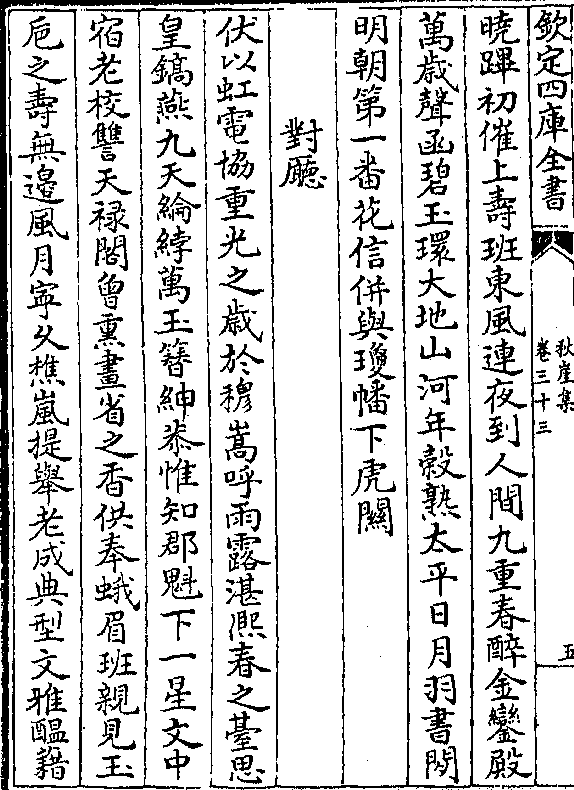 欽定四庫全書
秋崖集
卷三十三
五
曉蹕初催上壽班東風連夜到人間九重春醉金鑾殿
萬歲聲函碧玉環大地山河年穀熟太平日月羽書閒
明朝第一番花信併與瓊幡下虎關
對廳
伏以虹電協重光之歲於穆嵩呼雨露湛熙春之臺思
皇鎬燕九天綸綍萬玉簪紳恭惟知郡魁下一星文中
宿老校讐天禄閣曾熏畫省之香供奉蛾眉班親見玉
巵之壽無邉風月寧乆樵嵐提舉老成典型文雅醖藉